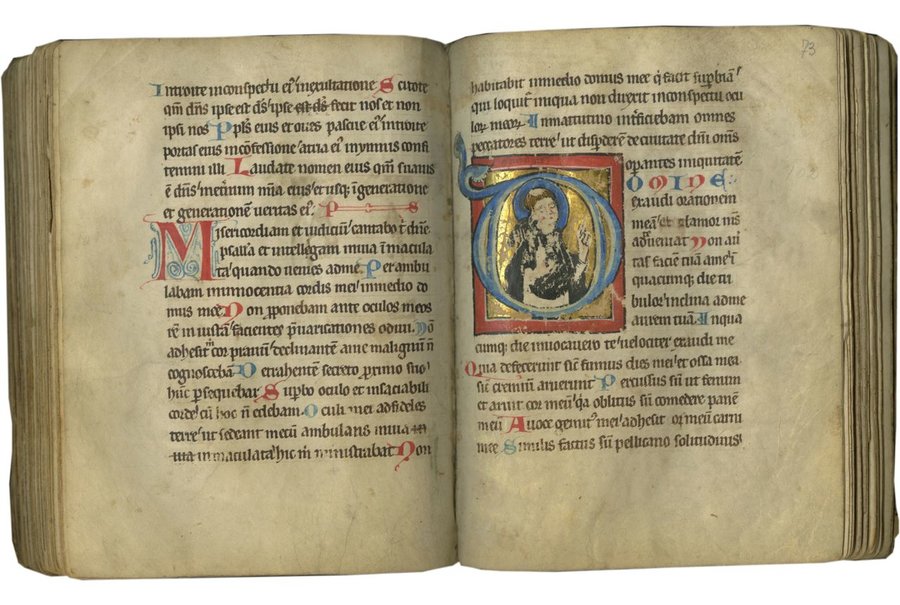 Introite inconspectu ei' inexultatione Scitote
qm dns ipse est ds' ipse est ds fecit nos et non
ipsi nos Ppls eius et oues pascue ei' introite
portas eius inconfessione atria ei' inymnis confi
temini illi Laudate nomen eius qm suauis
e dns' ineternum mia eius et usq; i generatione
et generatione ueritas ei' Ps
Misericordiam et iudiciu' cantabo t' dne
psalla et intellegam inuia inmacula
ta' quando uenies adme Perambu
labam ininnocentia cordis mei' inmedio do
mus mee Non pponebam ante oculos meos
re iniusta' facientes puaricationes odiui Non
adhesit m cor prauu' declinante ame malignu n
cognosceba Detrahentem secreto proximo suo'
hunc psequebar Supbo oculo et insaciabili
corde cu hoc n edebam Oculi mei adfideles
terre' ut sedeant mecu ambulans inuia in
uia inmaculata' hic m ministrabat Non
73
habitabit inmedio domus mee q facit supbia'
qui loquit' iniqua non direxit inconspectu ocu
lor meor Inmatutino inficiebam omnes
peccatores terre' ut dispderem de ciuitate dni oms
operantes iniquitate
DOMINE
exaudi orationem
mea' et clamor ms
adte ueniat Non auer
tas facie tua ame' i
quacumq; die tri
bulor' inclina adme
aurem tua' Inqua
cumq; die inuocauero te' uelociter exaudi me
Quia defecerunt sic fumus dies mei' et ossa mea
sic cremiu aruerunt Percussus su ut fenum
et aruit cor meu' qa oblitus su comedere pane
meu Auoce gemit' mei' adhesit os meu carni
mee Similis factus su pellicano solitudinis